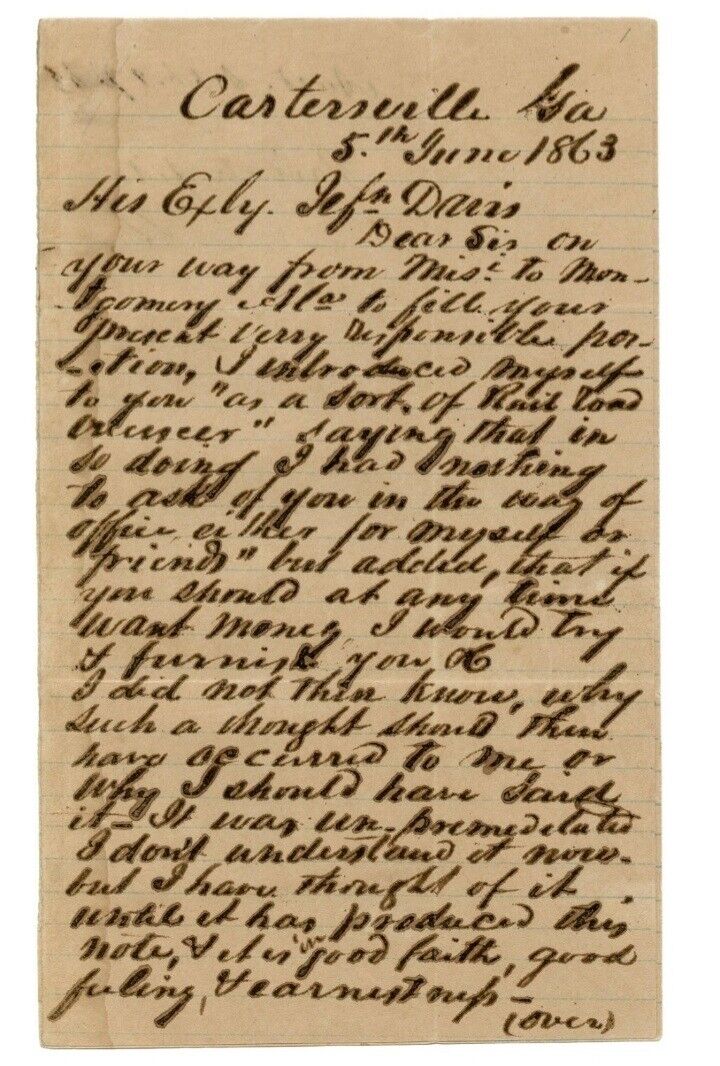 Cartersville Ga
5.th June 1863
His Exly. Jefn Davis
Dear Sir on
your way from Misi. to Mon-
tgomery Ala to fill your
present verry responsible po-
-sition, I introduced myself
to you "as a sort, of Rail Road
overseer" saying that in
so doing I had nothing
to ask of you in the way of
office either for myself or
friends" but added, that if
you should at any time
want money I would try
& furnish you &c
I did not then know, why
such a thought should then
have occurred to me or
why I should have said
it - It was un-premeditated
I don't understand it now-
but I have thought of it
until it has produced this
note, & it is in good faith, good
feeling, & earnestness -
(over)